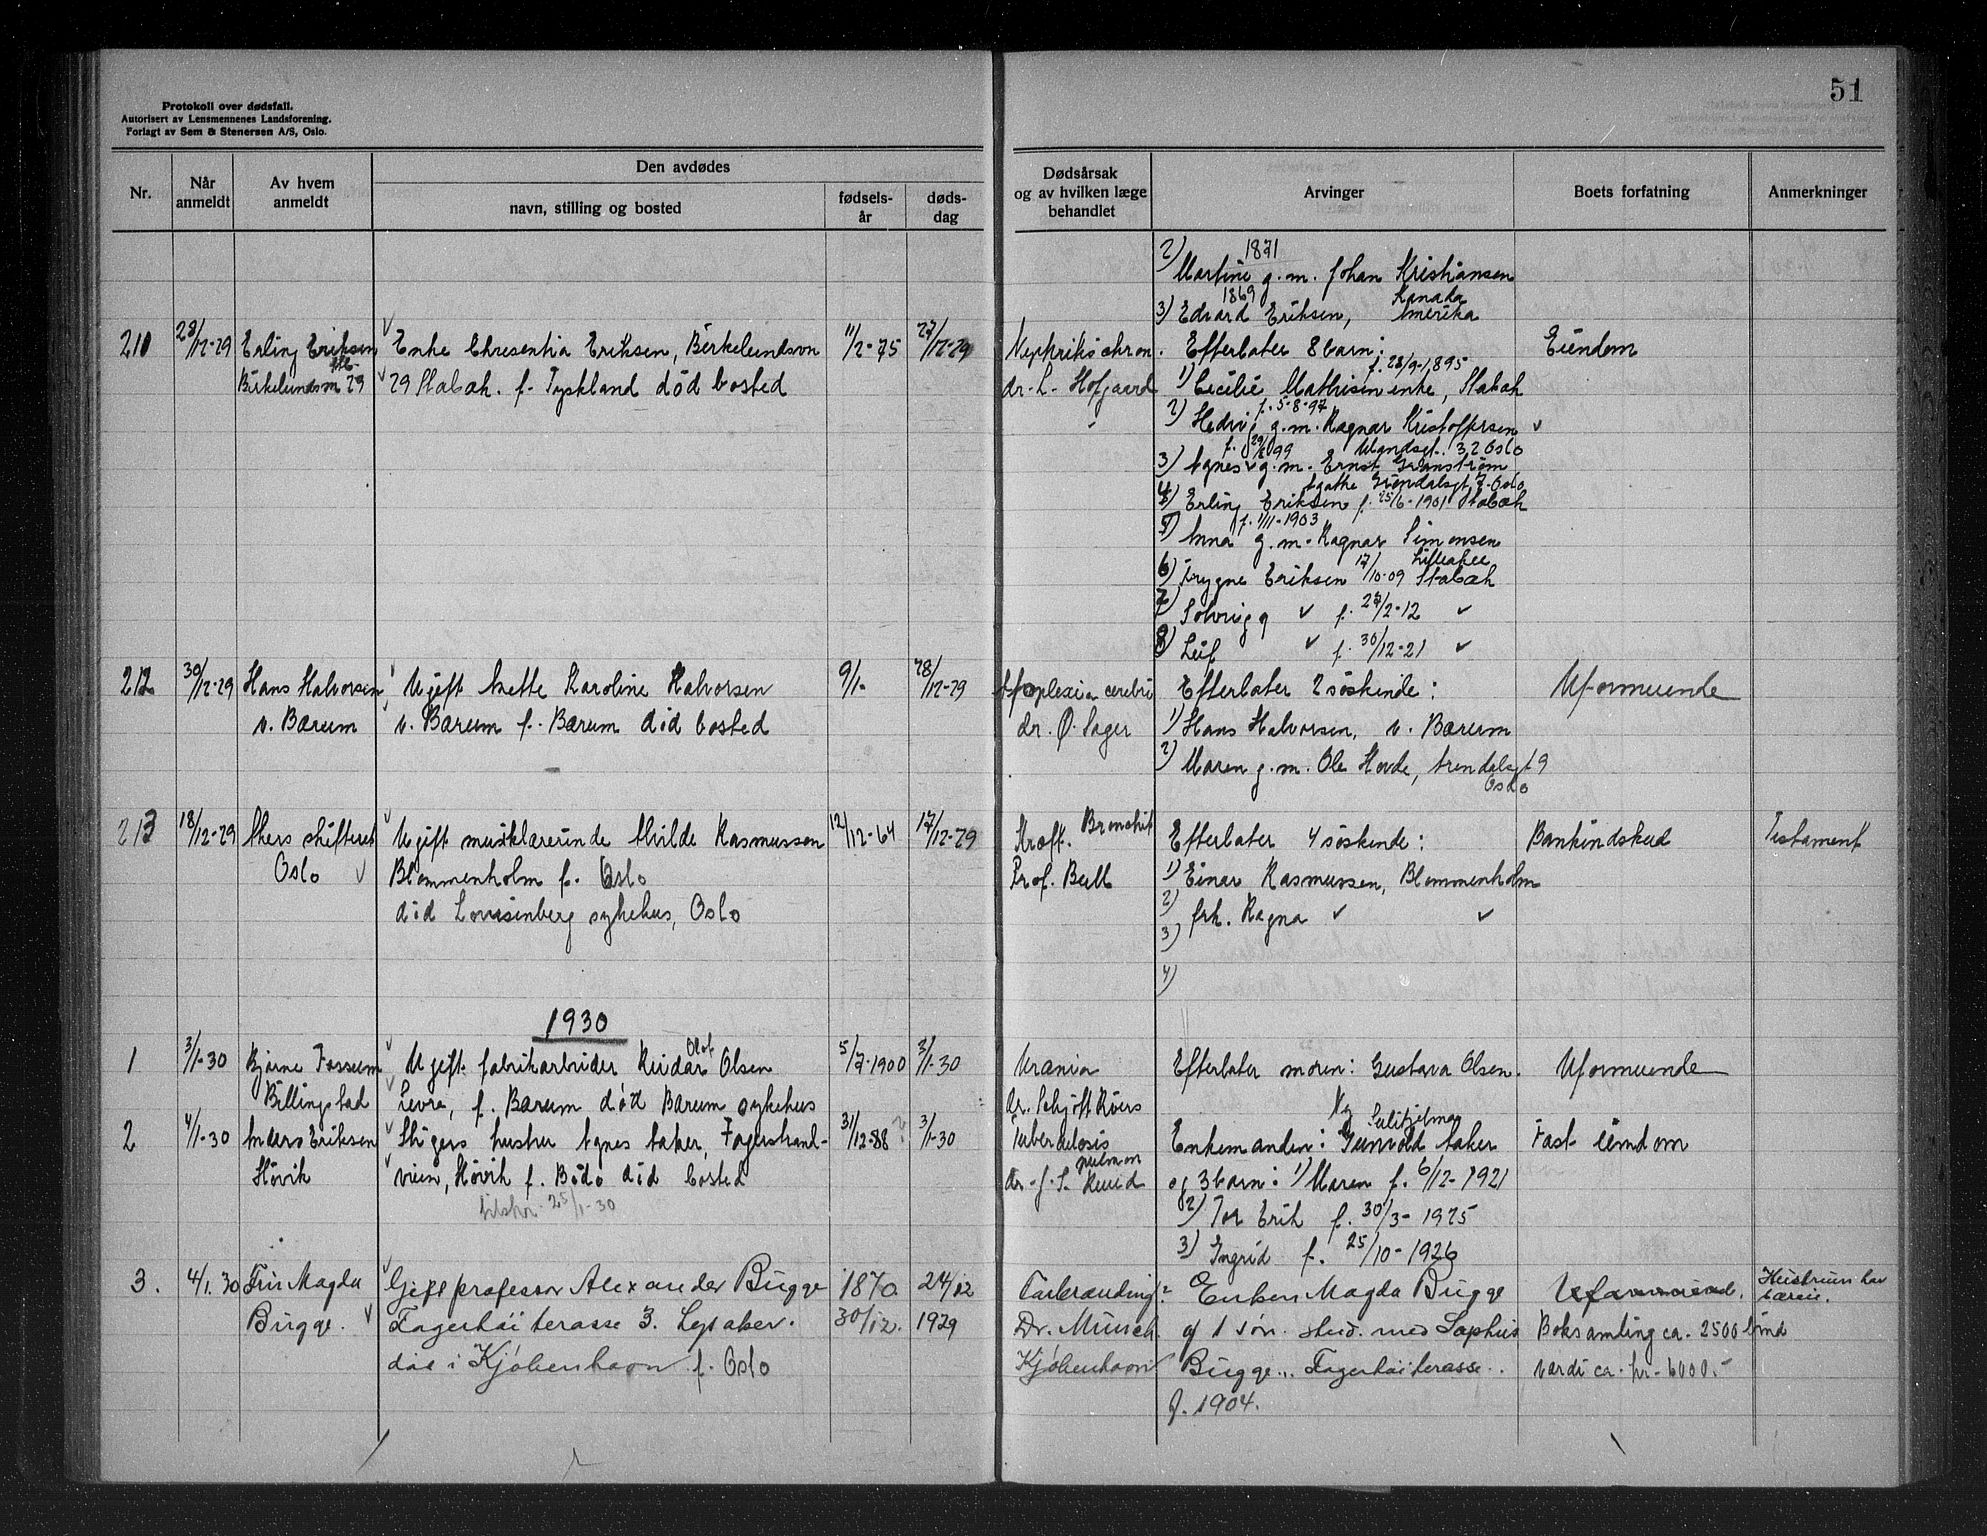 Protokoll over dødsfall.
Autorisert av Lensmennenes Landsforening.
Forlagt av Sem & Stenersen A/S, Oslo.
51
Nr.
Når anmeldt
Av hvem anmeldt
Den avdødes
navn, stilling og bosted
fødsels-år
døds-dag
Dødsårsak og av hvilken læge behandlet
Arvinger
Boets forfatning
Anmerkninger
1871
2) Martine g.m. Johan Kristiansen
1869 Kanada
3) Edvard Eriksen, Amerika
211 28/12-29 Erling Eriksen Enke Chresentia Eriksen, Birkelundsvn 11/2-75 27/12-29 chron. Efterlater 8 barn: Eiendom
Birkelundsvn 29 29 Stabæk. f. Tyskland død bosted dr. L. Hofgaard
f. 28/9-1895
1) Cecilie Mathisen enke, Stabæk
f. 5-8-97
2) Hedvig g.m. Ragnar Kristoffersen
32 Oslo
3) Agnes g.m. Ernst Granstrøm
Agathe Grøndalsgt. 7. Oslo
4) Erling Eriksen f. 25/6-1901 Stabæk
f. 1/11-1903
5) Anna g.m. Ragnar Simonsen
Lilleaker
6) Trygve Eriksen 17/10-09 Stabæk
7) Solveig f. 27/2-12
8) Leif f. 30/12-21
212 30/12-29 Hans Halvorsen Ugift Anette Karoline Halvorsen 9/1- 28/12-29 Apoplexia cerebri Efterlater 2 søskende: Uformuende
v. Bærum v. Bærum f. Bærum død bosted dr. Ø. Sager 1) Hans Halvorsen, v. Bærum
2) Maren g.m. Ole Hovde, Arendalsgt 9
Oslo
213 18/12-29 Akers skifterett Ugift musiklærerinde Alvilde Rasmussen 12/12-64 17/12-29 Bronchit Efterlater 4 søskende: Bankindskud Testament
Oslo Blommenholm f. Oslo Prof. Bull 1) Einar Rasmussen, Blommenholm
død Lovisenberg sykehus, Oslo 2) frk. Ragna
3)
4)
1930
1 3/1-30 Bjarne Fossum Ugift fabrikarbeider Reidar Olaf Olsen 5/7-1900 3/1-30 Urania Efterlater moren: Gustava Olsen. Uformuende
Billingstad Levre, f. Bærum død Bærum sykehus dr. Schjøtt Rivers
Sulitjelma
2 4/1-30 Anders Eriksen Stigers hustru Agnes Aaker, Fagerstrand- 31/12-88 3/1-30 Tuberkulosis Enkemanden: Gunvald Aaker Fast eiendom
Høvik veien, Høvik f. Bodø død bosted pulmon dr. J. S. og 3 barn: 1) Maren f. 6/12-1921
25/1-30
2) Tor Erik f. 30/3-1925
3) Ingrid f. 25/10-1926
3. 4/1.30 Fru Magda Gift professor Alexander Bugge 1870 24/12 Tarblødning? Enken Magda Bugge Uformuende. Hustruen har
Bugge. Fagerhøi terasse 3. Lysaker. 30/12. 1929 Dr. Munch og 1 søn. stud. med Sophus Boksamling ca. 2500 bind
død i Kjøbenhavn f. Oslo Kjøbenhavn Bugge. Fagerhøi terasse. værdi ca. kr. 6000.-
f. 1904.